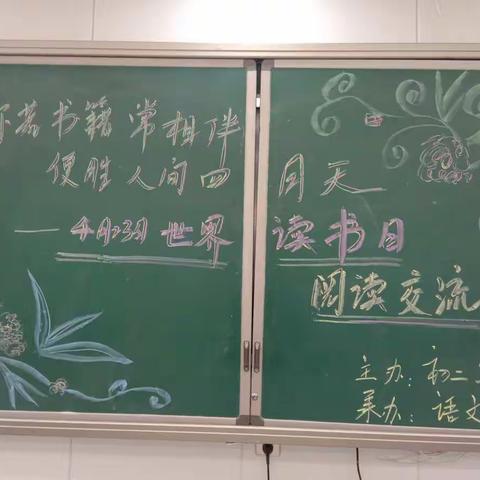 若书籍常相伴
便胜人间四月天
——4月23日世界读书日
阅读交流
主办：初二
承办：语文